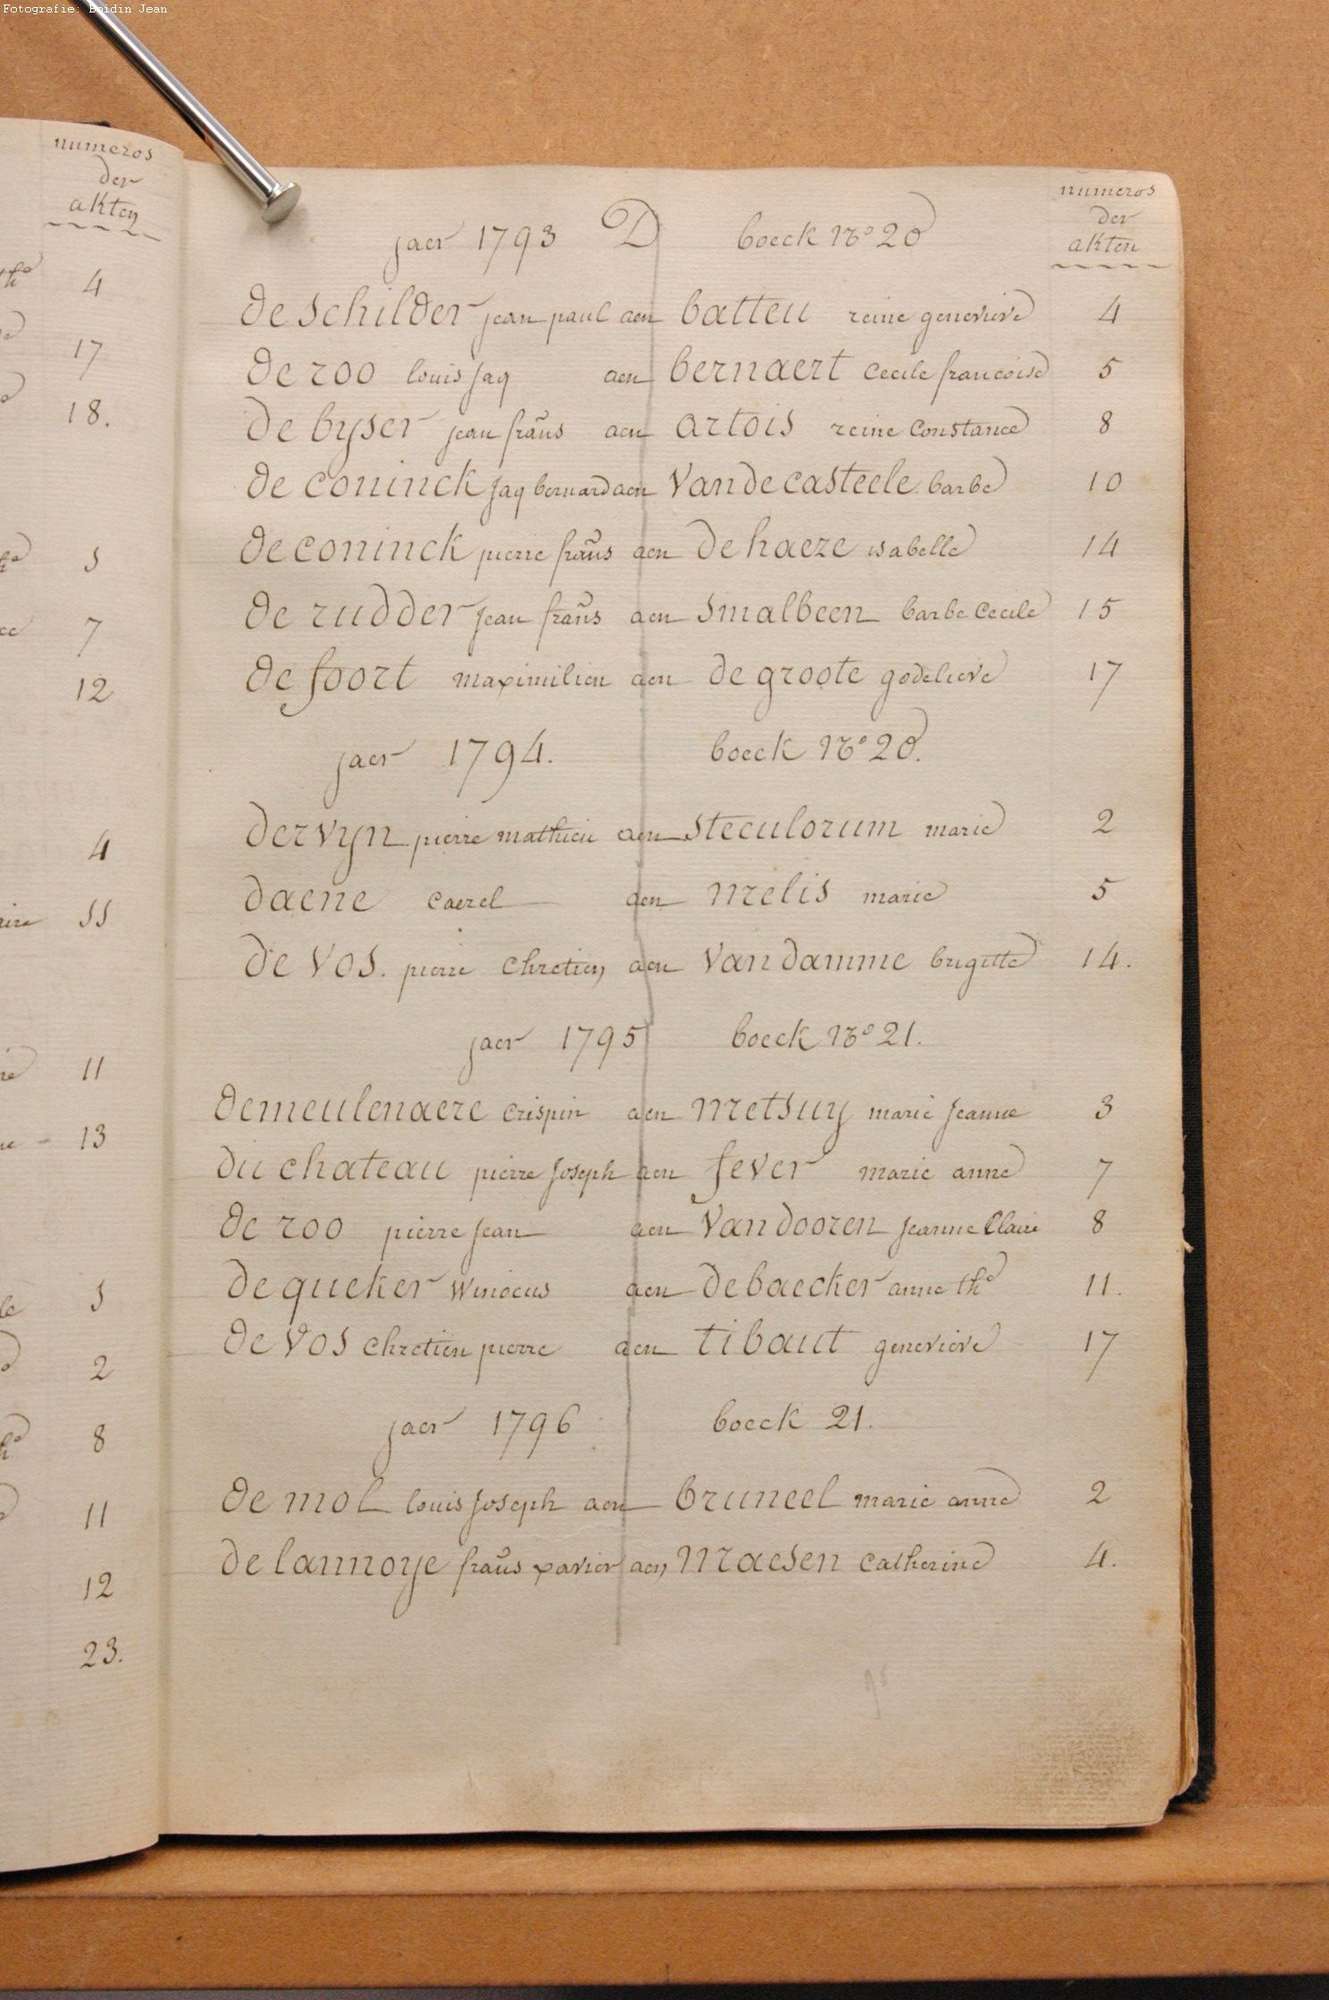 Fotografie: Boidin Jean
numeros
der
akten
4
17
18.
5
7
12
4
11
11
13
2
8
11
12
23.
numeros
der
akten
jaer 1793 D boeck No 20
de schilder jean paul aen batteu reine genevieve 4
de roo louis jaq aen bernaert cecile francoise 5
de byser jean frans aen artois reine constance 8
de coninck jaq bernard aen Vandecasteele barbe 10
de coninck pierre frans aen de haeze isabelle 14
de rudder jean frans aen Smalbeen barbe cecile 15
de foort maximilien aen de groote godelieve 17
jaer 1794. boeck No 20.
dervyn pierre mathieu aen Steculorum marie 2
daene caerel aen melis marie 5
de Vos. pierre chretien aen Van damme brigitte 14.
jaer 1795 boeck No 21.
demeulenaere crispin aen metsuy marie jeanne 3
du chateau pierre joseph aen fever marie anne 7
de roo pierre jean aen Van dooren jeanne Claire 8
de queker Winocus aen debaecker anne the 11.
de Vos chretien pierre aen tibaut genevieve 17
jaer 1796 boeck 21.
de mol louis joseph aen bruneel marie anne 2
de lannoye frans xavier aen maesen catherine 4.